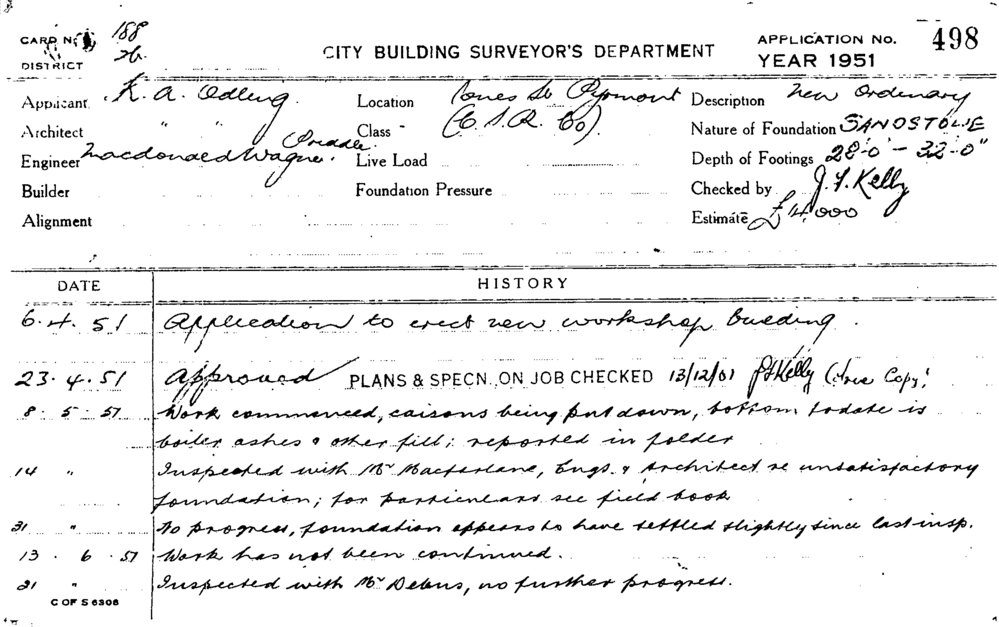 CARD No. 188
DISTRICT 2b.
CITY BUILDING SURVEYOR'S DEPARTMENT
APPLICATION No. 498
YEAR 1951
Applicant K. A. Odling.
Location Jones St Pyrmont
Description New Ordenary
Architect " "
Class (C. S. R. Co).
Nature of Foundation SANDSTONE
Engineer Macdonald Wagner. Priddle.
Live Load
Depth of Footings 28'.0" - 32'.0"
Builder
Foundation Pressure
Checked by J. F. Kelly
Alignment
Estimate £14,000
DATE HISTORY
6. 4. 51 Application to erect new workshop building.
23. 4. 51 Approved PLANS & SPECN. ON JOB CHECKED 13/12/01 J F Kelly (True Copy)
8. 5. 51 Work commenced, caisons being put down, bottom todate is
boiler ashes & other fill; reported in folder
14 " Inspected with Mr Macfarlane, Engs. & Architect re unsatisfactory
foundation; for particulars see field book
31 " No progress, foundation appears to have settled slightly since last insp.
13. 6. 51 Work has not been continued.
21 " Inspected with Mr Debus, no further progress.
C OF S 6306